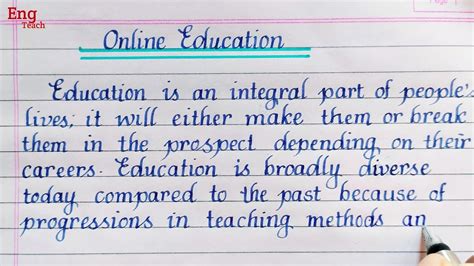 Eng
Teach
Page
Online Education
Education is an integral part of people's
lives; it will either make them or break
them in the prospect depending on their
careers. Education is broadly diverse
today compared to the past because of
progressions in teaching methods an